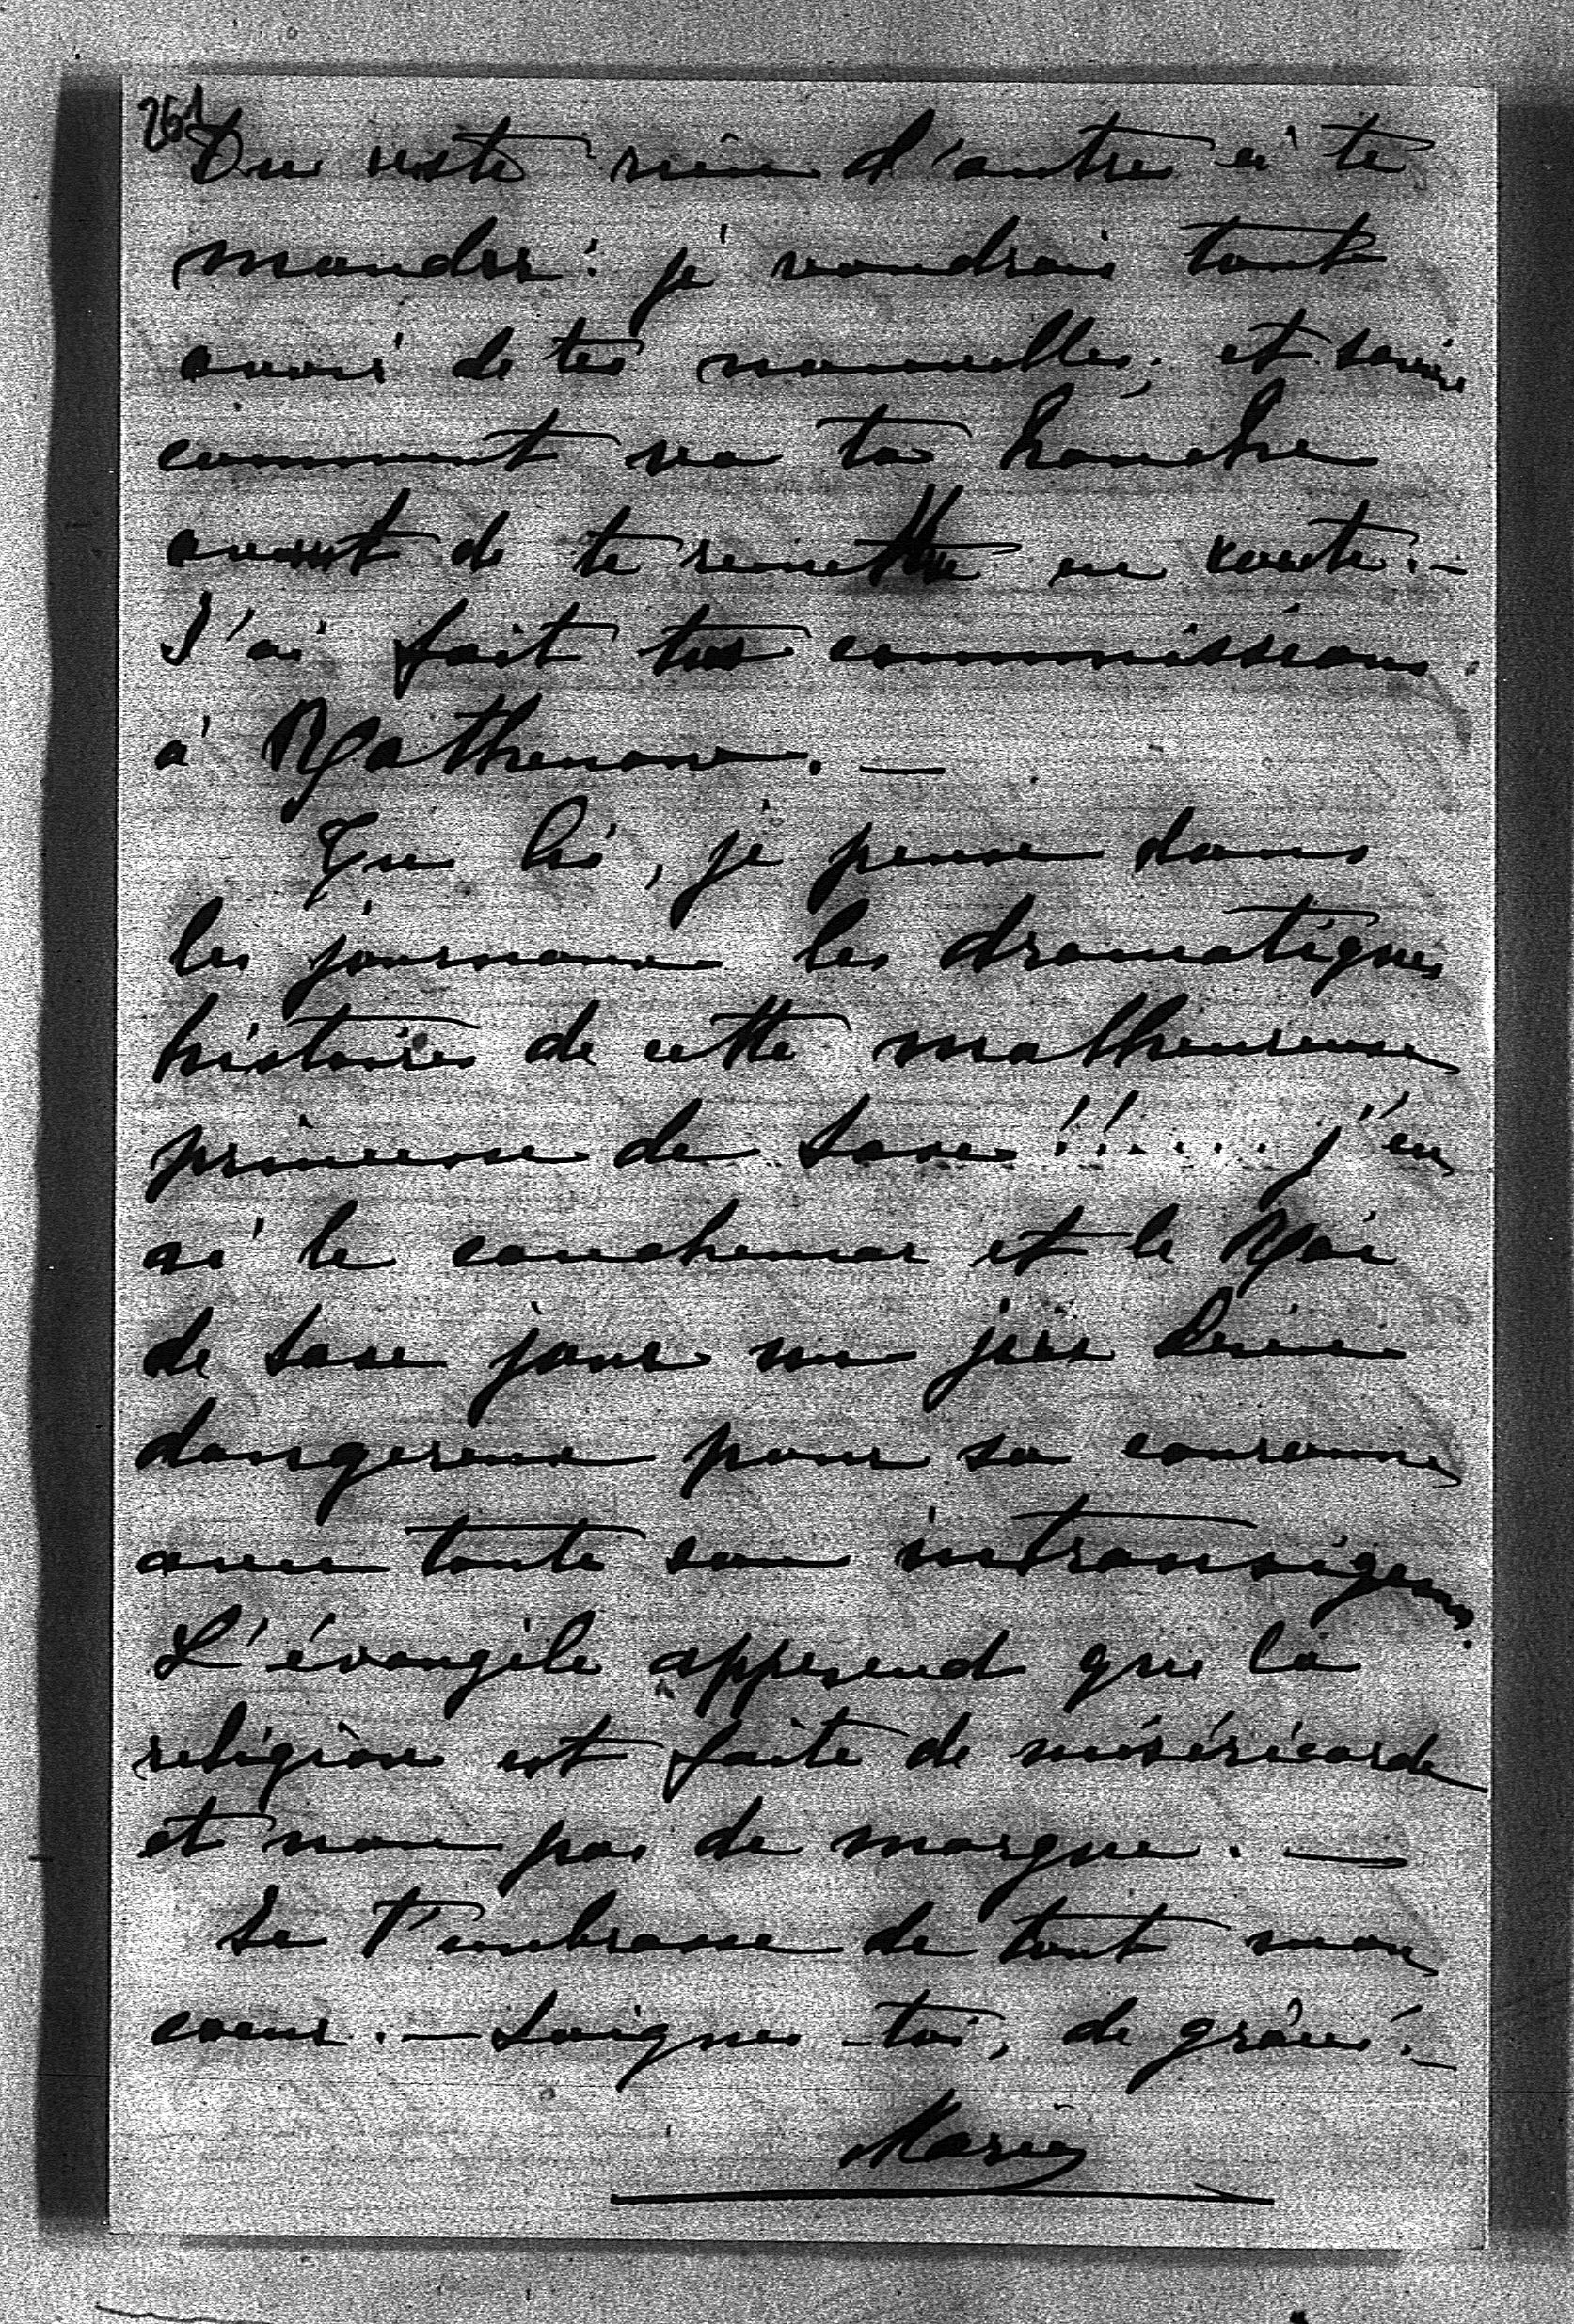 261
Du reste rien d'autre à te
mander: je voudrais tant
avoir de tes nouvelles, et savoir
comment va ta hanche
avant de te remettre en route. –
J'ai fait tes commissions
à Rathenow. –
Tu lis, je pense dans
les journaux les dramatiques
histoires de cette malheureuse
princesse de Saxe!!..... j'en
ai le cauchemar et le Roi
de Saxe joue un jeu bien
dangereux pour sa couronne
avec toute son intransigence.
L'évangile apprend que la
religion est faite de miséricorde
et non pas de morgue. –
Je t'embrasse de tout mon
cœur. – Soignes-toi, de grâce. –
Marie